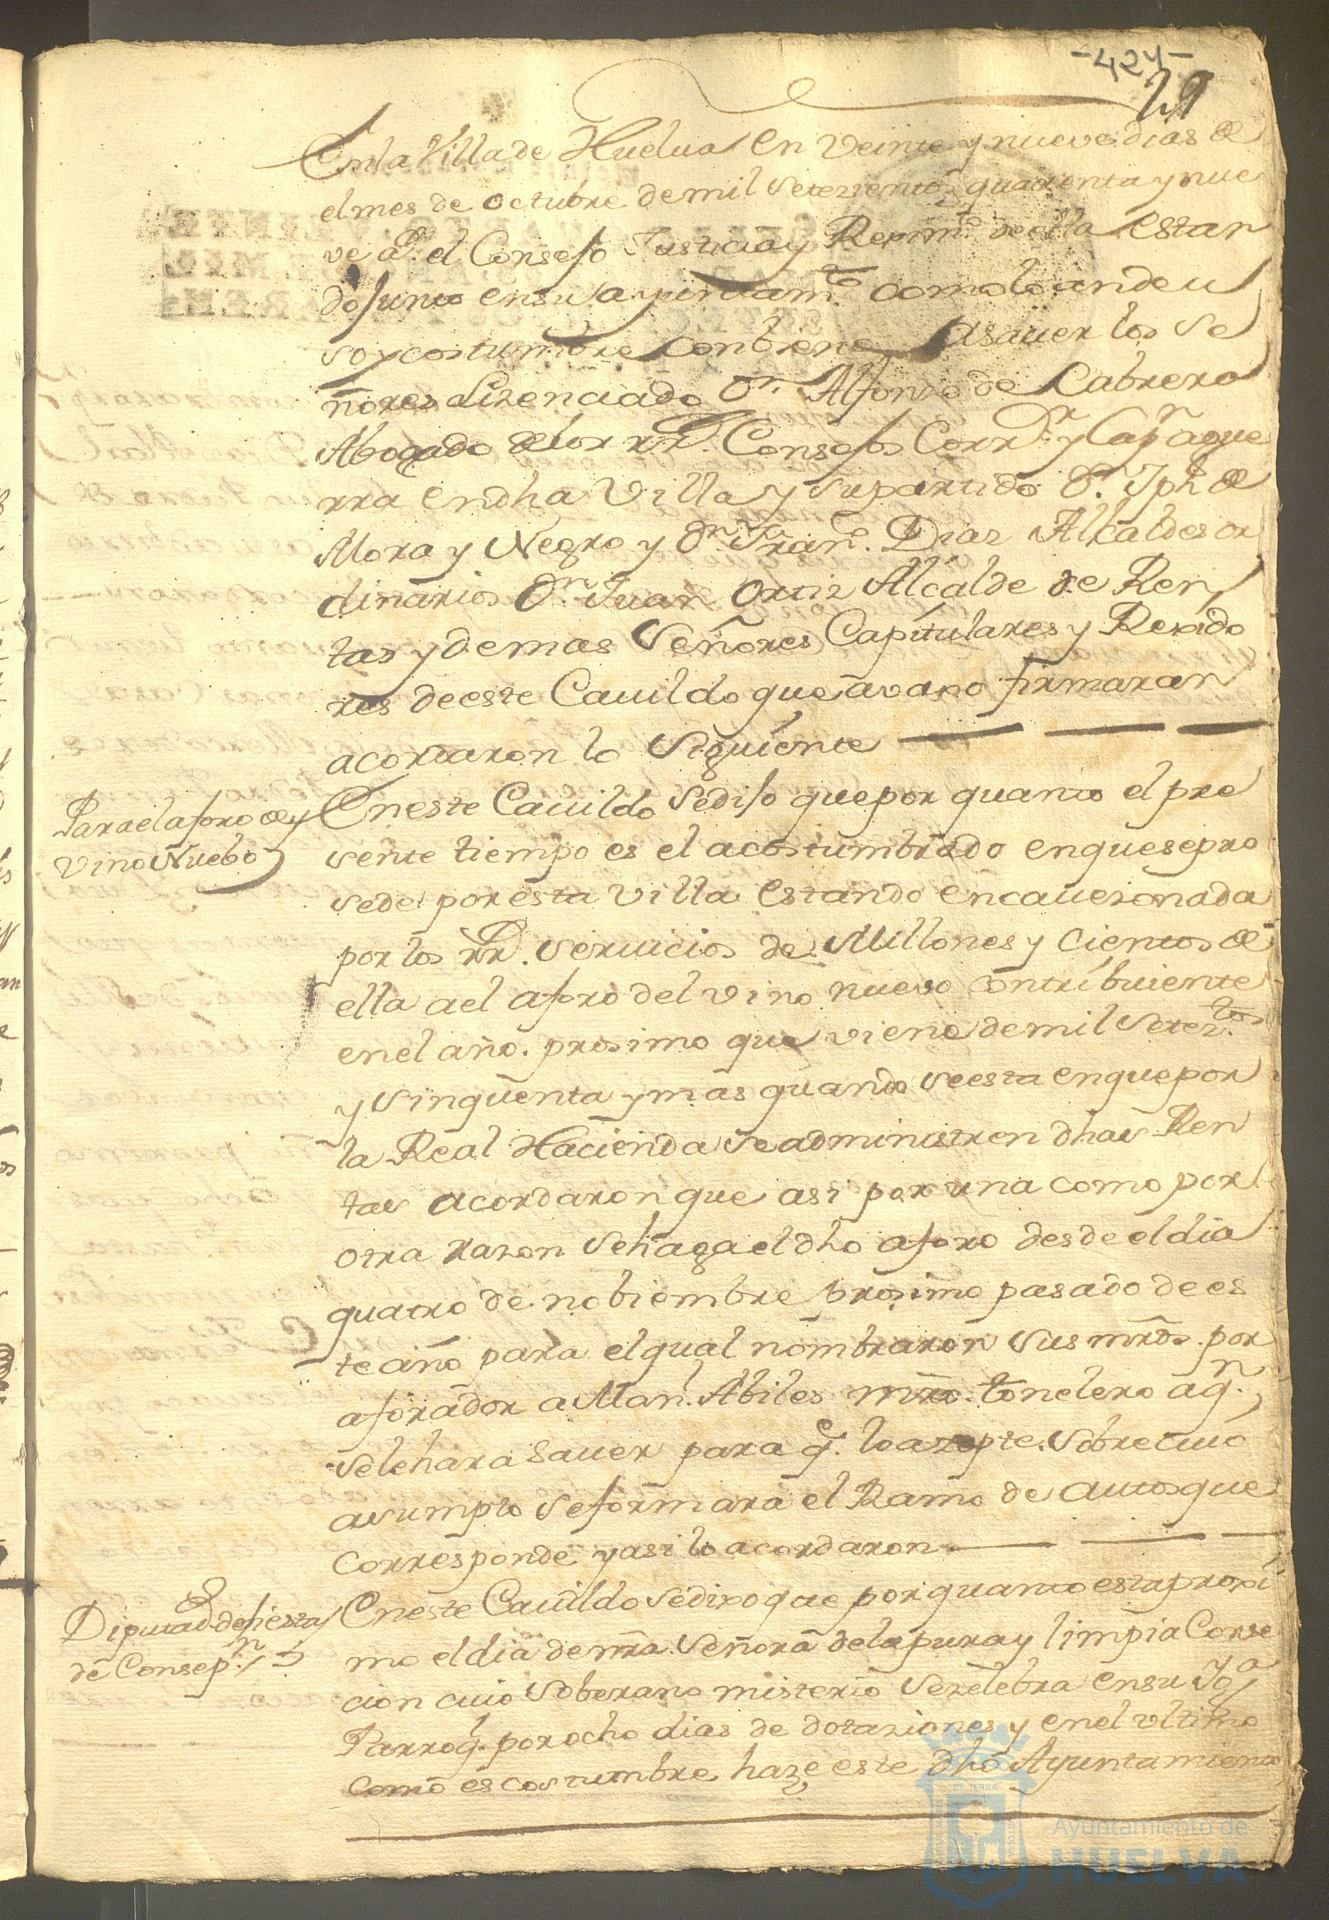 -424-
29
En la Villa de Huelua en Veinte y nueve dias de
el mes de octubre de mil setezientos quarenta y nue
ve a.s el Consejo Justicia y Reximto. de ella estan
do junto en su ayuntamto. como lo an de u
so y costumbre conbiene asauer los Se
ñores Lizenciado Dn. Alfonso de Cabrera
Abogado de los RRs. Consejos Corrxr. y Capn. a gue
rra en dha Villa y su partido Dn. Jph de
Mora y Negro y Dn. Fran.co Diaz Alcaldes or
dinarios Dn. Juan Ortiz Alcalde de Ren
tas y demas Señores Capitulares y Rexido
res de este Cauildo que avaxo firmaran
acordaron lo siguiente
Para el aforo de y
Vino Nuebo
En este Cauildo se dijo que por quanto el pre
sente tiempo es el acostumbrado en que se pro
sede por esta Villa estando encauezonada
por los RRs. servicios de Millones y cientos de
ella a el aforo del vino nuevo contribuiente
en el año proximo que viene de mil setez.tos
y sinquenta y mas quando se esta en que por
la Real Hacienda se administren dhas Ren
tas acordaron que asi por una como por
otra razon se haga el dho aforo desde el dia
quatro de nobiembre proximo pasado de es
te año para el qual nombraron sus mrds. por
aforador a Man.l Abiles mro. tonelero a qn.
se le hara sauer para q.e lo azepte. Sobre cuio
asumpto se formara el Ramo de autos que
corresponde y asi lo acordaron
Diputads. de fiesta
de Consepn.
En este Cauildo se dixo que por quanto esta proxi
mo el dia de nra. Señora de la pura y limpia Conse
cion cuio soberano misterio se zelebra en su Yga
Parroql. por ocho dias de dotaziones y en el ultimo
como es costumbre haze este dho Ayuntamiento
Ayuntamiento de
HUELVA